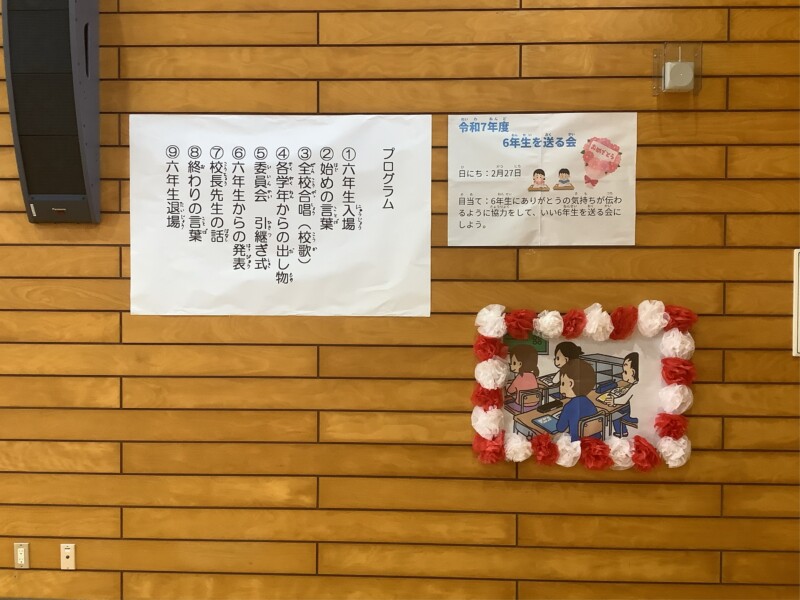 プログラム
①六年生入場
②始めの言葉
③全校合唱（校歌）
④各学年からの出し物
⑤委員会　引継ぎ式
⑥六年生からの発表
⑦校長先生の話
⑧終わりの言葉
⑨六年生退場
令和7年度
6年生を送る会
おめでとう
日にち：2月27日
目当て：6年生にありがとうの気持ちが伝わ
るように協力をして、いい6年生を送る会に
しよう。